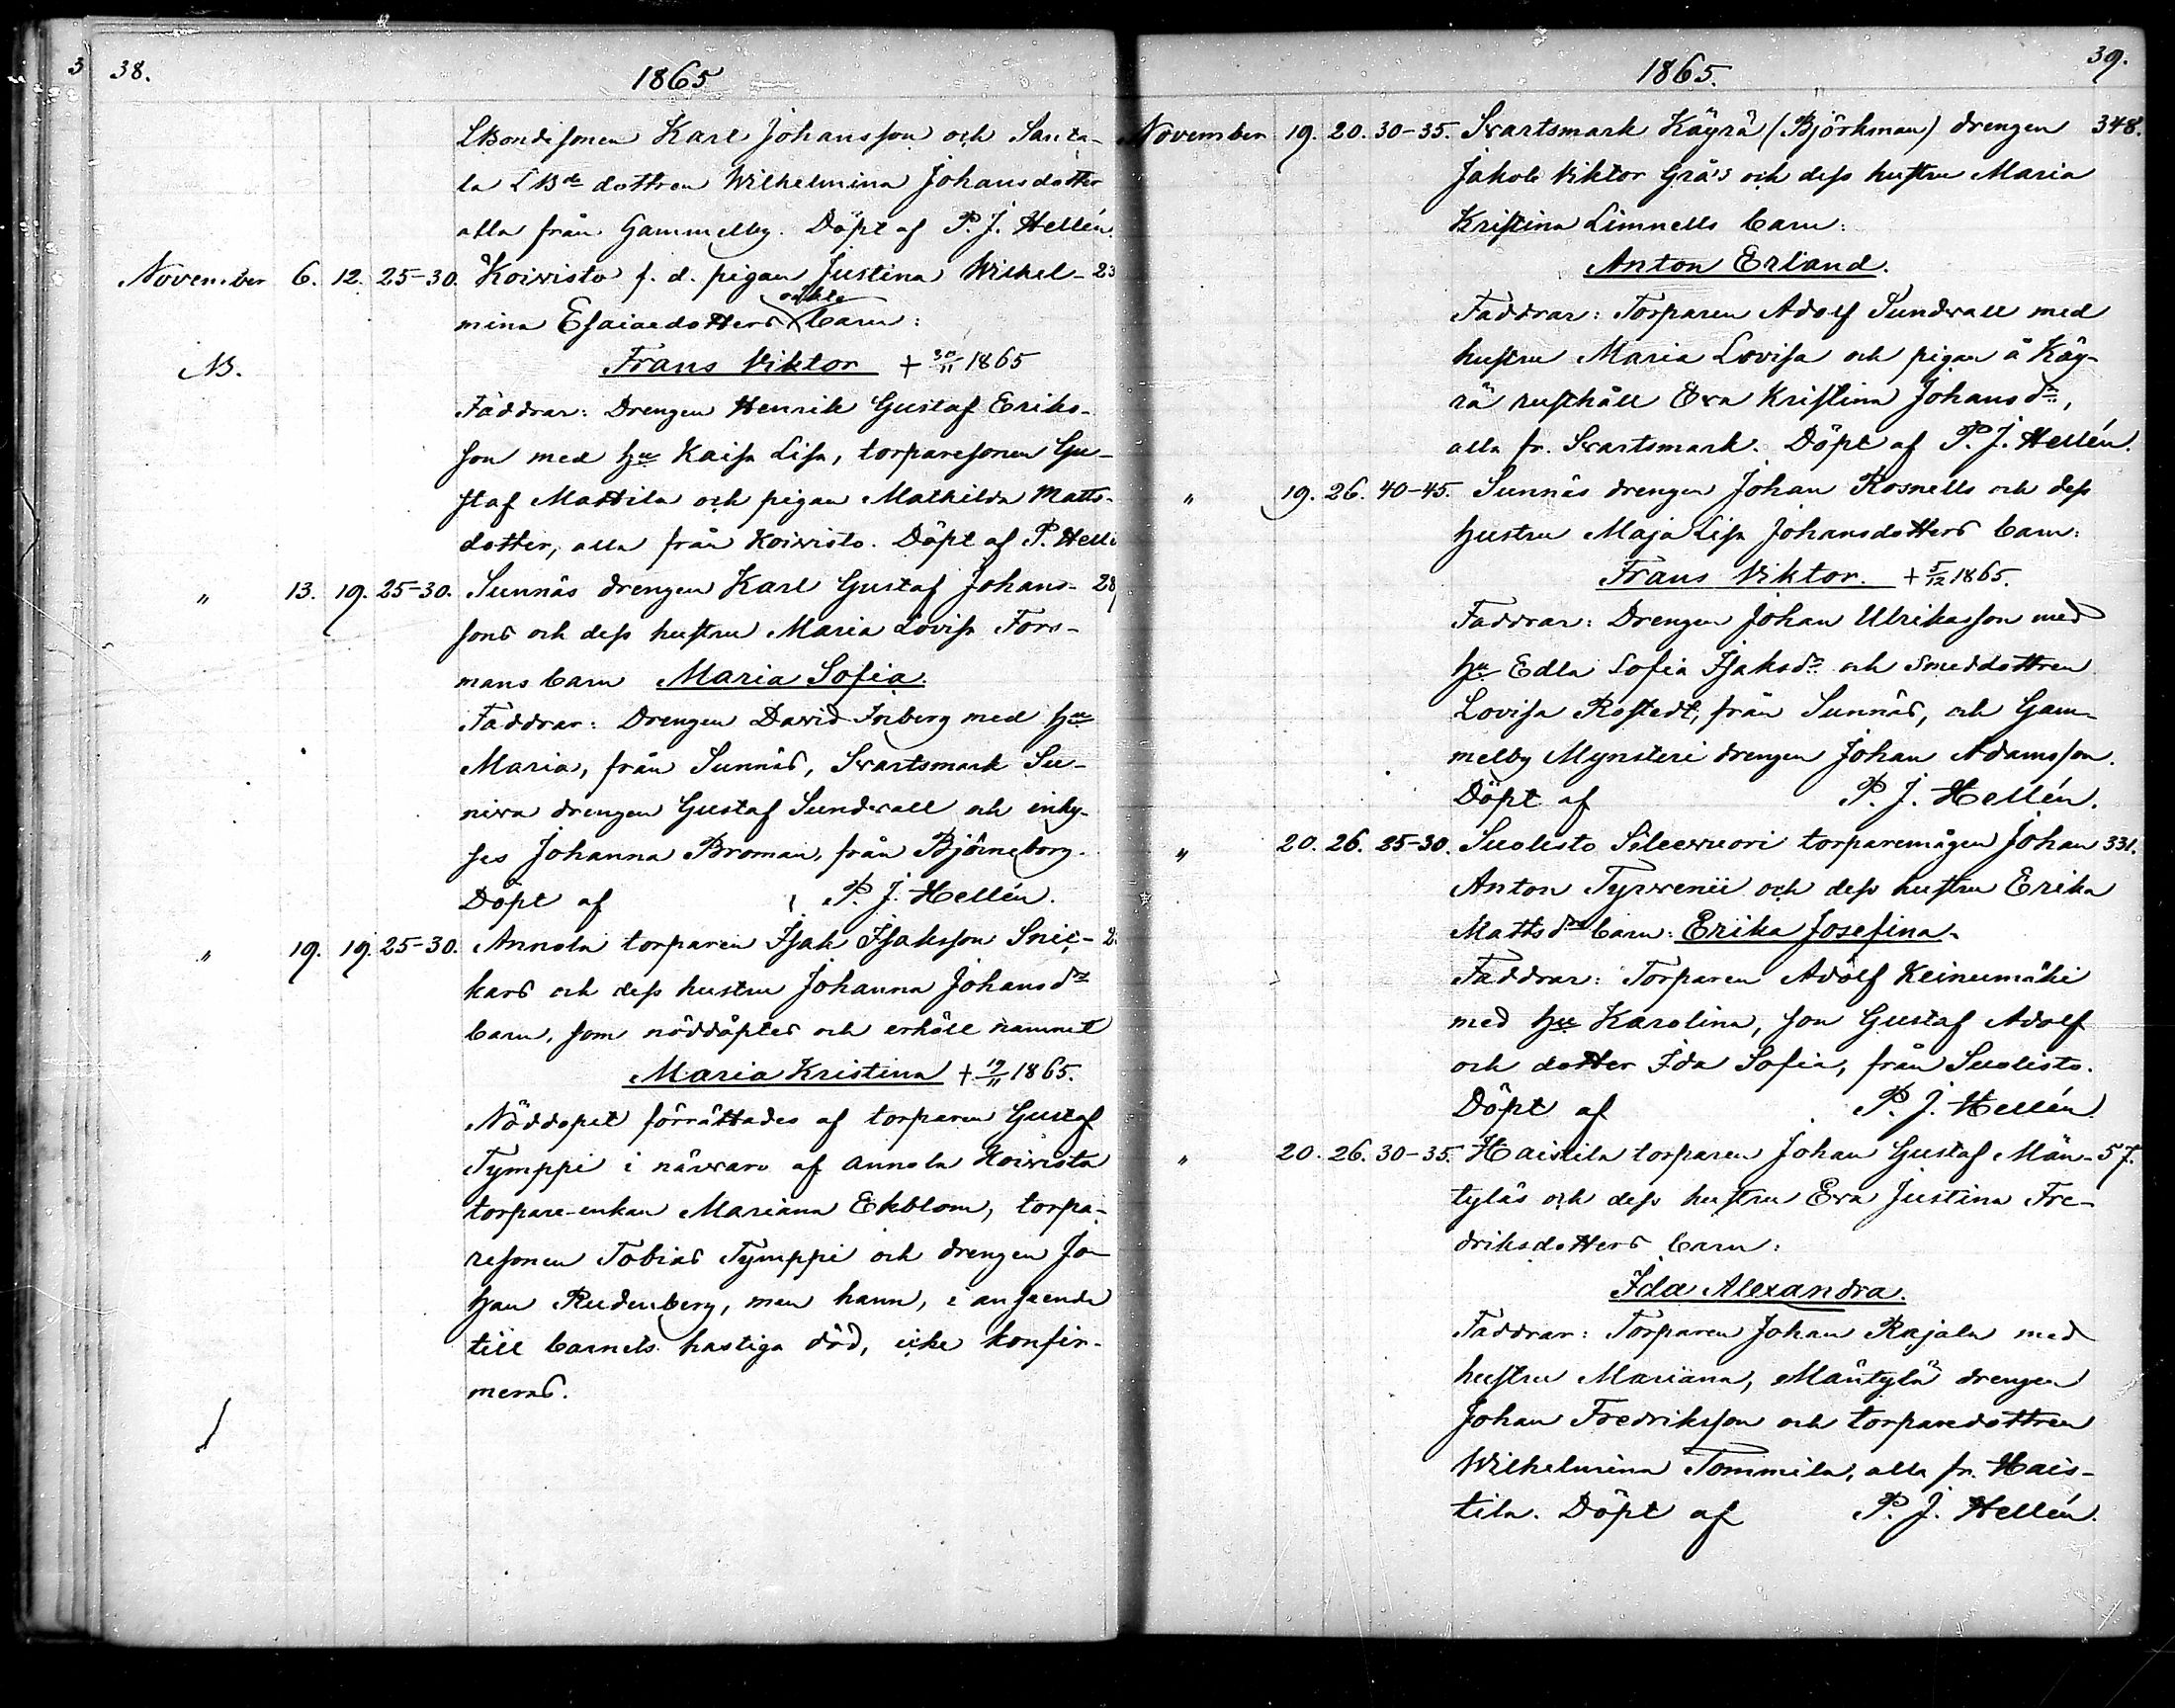 3 38.
1865
LBondesonen Karl Johansson och Santa-
la LBde dottren Wilhelmina Johansdotter
alla från Gammelby. Döpt af P. J. Hellén.
November 6. 12. 25-30. Koivisto f. d. pigan Justina Wilhel- 23
oäkta
mina Esaiaedotters barn:
NB. Frans Viktor + 30/11 1865
Faddrar: Drengen Henrik Gustaf Eriks-
son med hu Kaisa Lisa, torparesonen Gu-
staf Mattila och pigan Mathilda Matts-
dotter, alla från Koivisto. Döpt af P. Hellé
" 13. 19. 25-30. Sunnäs drengen Karl Gustaf Johans- 28
sons och dess hustru Maria Lovisa Fors-
mans barn Maria Sofia.
Faddrar: Drengen David Inberg med hu
Maria, från Sunnäs, Svartsmark Su-
niva drengen Gustaf Sundvall och inhy-
ses Johanna Broman, från Björneborg.
Döpt af P. J. Hellén.
" 19. 19. 25-30. Annola torparen Isak Isaksson Snic- 2
kars och dess hustru Johanna Johansdr
barn, som nöddöptes och erhöll namnet
Maria Kristina + 19/11 1865.
Nöddopet förrättades af torparen Gustaf
Tymppi i närvaro af Annola Koivisto
torpare-enkan Mariana Ekblom, torpa-
resonen Tobias Tymppi och drengen Jo-
han Rudenberg, men hann, i anseende
till barnets hastiga död, icke konfir-
meras.
39.
1865.
November 19. 20. 30-35. Svartsmark Käyrä (Björkman) drengen 348.
Jakob Viktor Grås och dess hustru Maria
Kristina Limnells barn:
Anton Erland.
Faddrar: Torparen Adolf Sundvall med
hustru Maria Lovisa och pigan å Käy-
rä rusthåll Eva Kristina Johansdr,
alla fr. Svartsmark. Döpt af P. J. Hellén.
" 19. 26. 40-45. Sunnäs drengen Johan Rosnells och dess
hustru Maja Lisa Johansdotters barn:
Frans Viktor. + 5/12 1865.
Faddrar: Drengen Johan Ulriksson med
hu Edla Sofia Isaksdr och smeddottren
Lovisa Rostedt, från Sunnäs, och Gam-
melby Mynsteri drengen Johan Adamsson.
Döpt af P. J. Hellén.
" 20. 26. 25-30. Suolisto torparemågen Johan 331.
Anton Tyrvenii och dess hustru Erika
Mattsdrs barn: Erika Josefina.
Faddrar: Torparen Adolf Keinumäki
med hu Karolina, son Gustaf Adolf
och dotter Ida Sofia, från Suolisto.
Döpt af P. J. Hellén.
" 20. 26. 30-35. Haistila torparen Johan Gustaf Män- 57.
tyläs och dess hustru Eva Justina Fre-
driksdotters barn:
Ida Alexandra.
Faddrar: Torparen Johan Rajala med
hustru Mariana, Mäntylä drengen
Johan Fredriksson och torparedottren
Wilhelmina Tommila, alla fr. Hais-
tila. Döpt af P. J. Hellén.